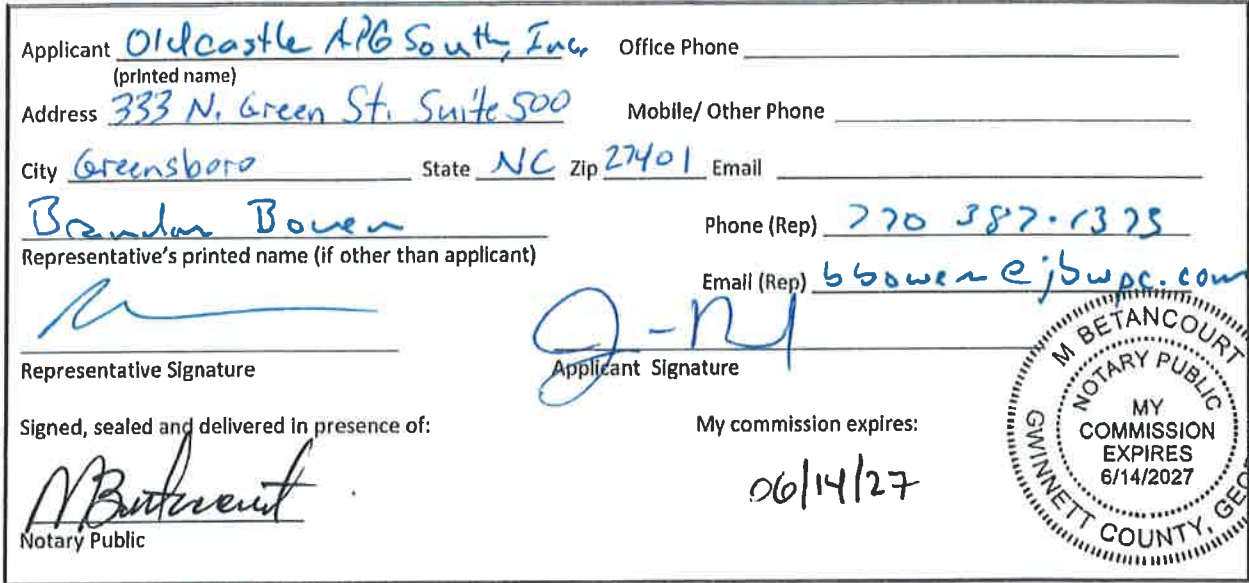 Applicant Oldcastle APG South, Inc. Office Phone
(printed name)
Address 333 N. Green St. Suite 500 Mobile/ Other Phone
City Greensboro State NC Zip 27401 Email
Brandon Bowen Phone (Rep) 770 387-1373
Representative's printed name (if other than applicant)
Email (Rep) bbowen@jbwpc.com
Representative Signature Applicant Signature
Signed, sealed and delivered in presence of: My commission expires:
06/14/27
Notary Public
M BETANCOURT
NOTARY PUBLIC
MY
COMMISSION
EXPIRES
6/14/2027
GWINNETT COUNTY, GEO